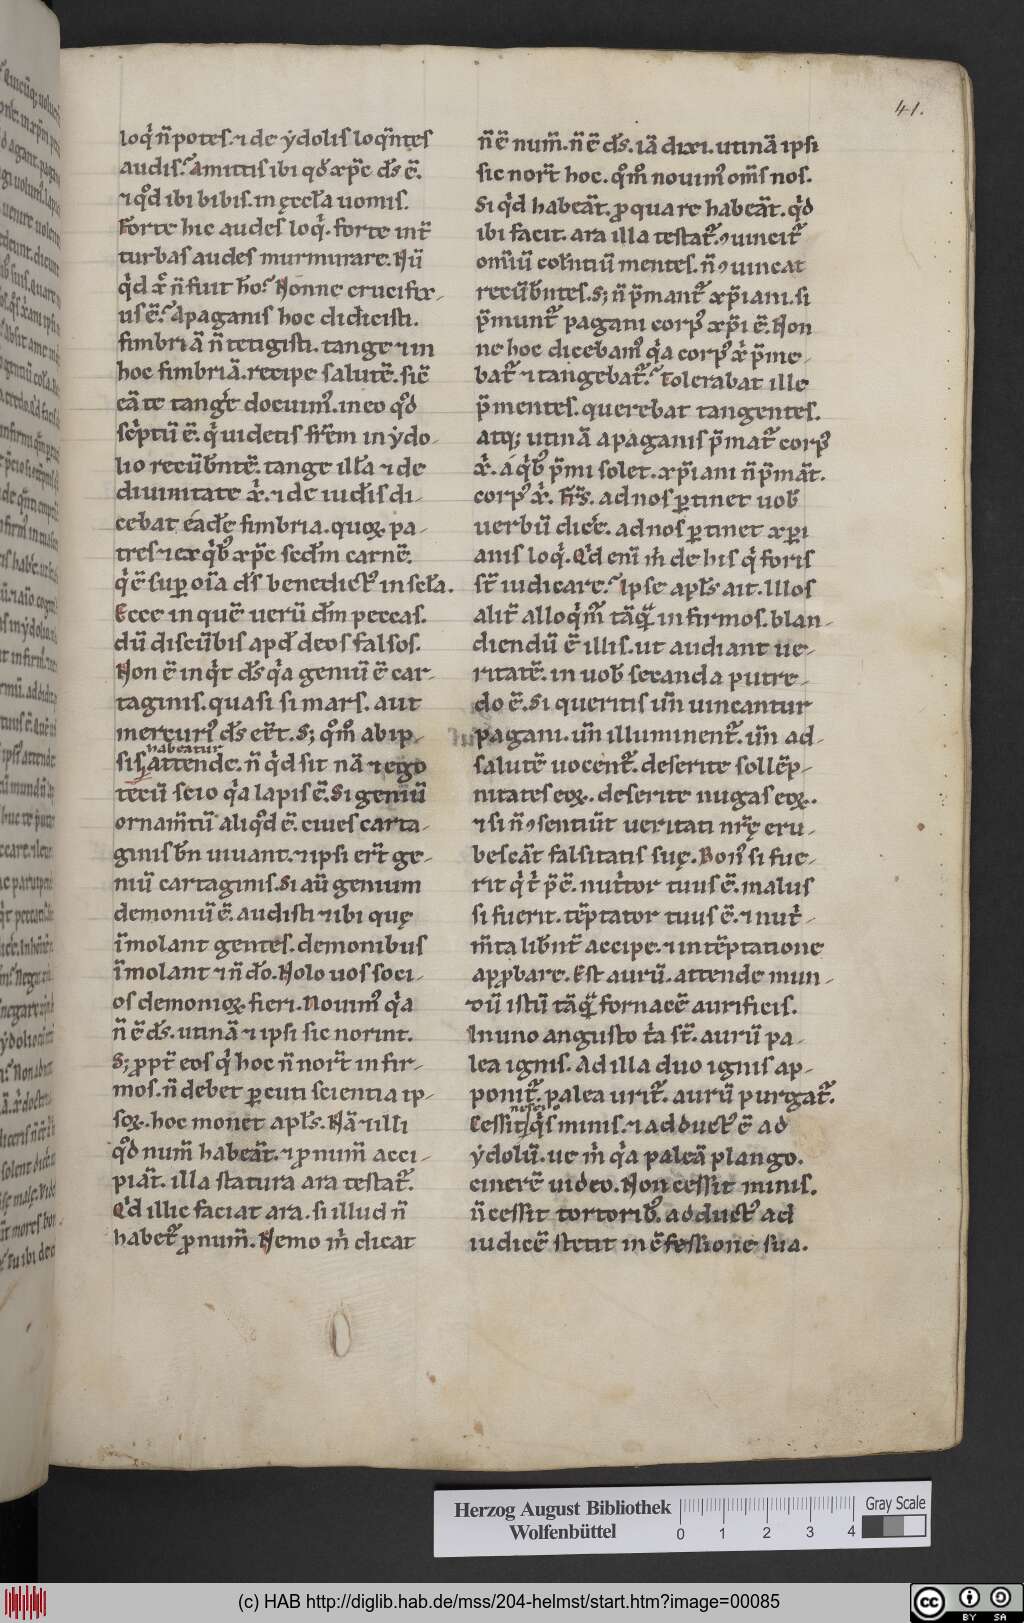 41.
loq̇ n̄ potes. ⁊ de ẏdolis loq̄ntes
audis? Amittis ibi qd̄ xp̄c ds̄ ē.
⁊ qd̄ ibi bibis. in ęccl̄a uomis.
Forte hic audes loq̇. forte int̄
turbas audes murmurare. Nū
q̇d xp̄c n̄ fuit h̄o? Nonne crucifix-
us ē? A paganis hoc didicisti.
fimbriā n̄ tetigisti. tange ⁊ in
hoc fimbriā. recipe salutē. sic̄
eā te tange͛ docuimꝰ. in eo qd̄
sċptū ē. q̇ uidetis fr̄em in ẏdo-
lio recūb̄ntē. tange ill̄a ⁊ de
diuinitate x̄. ⁊ de iud̄is di-
cebat eade͛ fimbria. quoꝝ pa-
tres ⁊ ex q̇bꝰ xp̄c scd̄m carnē.
q̇ ē suꝑ oīa ds̄ benedictꝰ in scl̄a.
Ecce in quē uerū dm̄ peccas.
dū discūbis apd̄ deos falsos.
Non ē inq̇t ds̄ q̇a geniū ē car-
taginis. quasi si mars. aut
mercuriꝰ ds̄ eēt. S; qm̊ ab ip-
habeatur
sis attende. n̄ q̇d sit nā ⁊ ego
tecū scio q̇a lapis ē. Si geniū
ornam̄tū aliqd̄ ē. ciues carta-
ginis bn̄ uiuant. ⁊ ipsi er̄t ge-
niū cartaginis. Si aū genium
demoniū ē. audisti ⁊ ibi quę
īmolant gentes. demonibus
īmolant ⁊ n̄ do̅. Nolo uos soci-
os demonioꝝ fieri. Nouimꝰ q̇a
n̄ ē ds̄. utinā ⁊ ipsi sic norint.
S; ꝓpt̄ eos q̇ hoc n̄ nor̄t infir-
mos. n̄ debet ꝑcuti scientia ip-
soꝝ. hoc monet apls̄. Nā ⁊ illi
qd̄ num̄ habeāt. ⁊ ꝓ num̄ acci-
piāt. illa statura ara testat᷑.
Q̇d illic faciat ara. si illud n̄
habet᷑ ꝓ num̄. Nemo m̄ dicat
n̄ ē num̄. n̄ ē ds̄. iā dixi. utinā ipsi
sic nor̄t hoc. qm̊ nouimꝰ om̄s nos.
Si q̇d habeāt. ꝓ qua re habeāt. q̇d
ibi facit. ara illa testat᷑. ꝯuincit᷑
omiū col̄ntiū mentes. n̄ ꝯuincat
recūb̄ntes. S; n̄ p̄mant᷑ xp̄iani. si
p̄munt᷑ pagani corpꝰ xp̄i ē. Non
ne hoc dicebamꝰ q̇a corpꝰ x̄ p̄me-
bat᷑ ⁊ tangebat᷑? Tolerabat ille
p̄mentes. querebat tangentes.
atq; utinā a paganis p̄mat᷑ corpꝰ
x̄. a q̇bꝰ p̄mi solet. xp̄iani n̄ p̄māt.
corpꝰ x̄. Fr̄s. ad nos ꝑtinet uob̄
uerbū dice͛. ad nos ꝑtinet xp̄i
anis loq̇. Q̇d eni̅ m̄ de his q̇ foris
st̄ iudicare? Ipse apls̄ ait. Illos
alit̄ alloq̇m᷑ tāq̄ infirmos. blan-
diendū ē illis. ut audiant ue-
ritatē. in uob̄ secanda putre-
do ē. Si queritis un̄ uincantur
pagani. un̄ illuminent᷑. un̄ ad-
salutē uocent᷑. deserite sollēp-
nitates eoꝝ. deserite nugas eoꝝ.
⁊ si n̄ ꝯsentiūt ueritati nr̄ę eru-
bescāt falsitatis suę. Bonꝰ si fue-
rit q̇ t̄ p̄ē. nut̄tor tuus ē. malus
si fuerit. tēptator tuus ē. ⁊ nut̄-
m̄ta lib̄nt̄ accipe. ⁊ in tēptatione
apꝓbare. Est aurū. attende mun-
dū istū tāq̄ fornacē aurificis.
In uno angusto t̄a st̄. aurū pa-
lea ignis. Ad illa duo ignis ap-
ponit᷑. palea urit᷑. aurū purgat᷑.
Cessit q̇s minis. ⁊ adductꝰ ē ad
ẏdolū. ue m̄ q̇a paleā plango.
cinerē uideo. Non cessit minis.
n̄ cessit tortoribꝰ. adductꝰ ad
iudicē stetit in ꝯfessione sua.
Herzog August Bibliothek
Wolfenbüttel
0 1 2 3 4
Gray Scale
(c) HAB http://diglib.hab.de/mss/204-helmst/start.htm?image=00085
cc BY SA